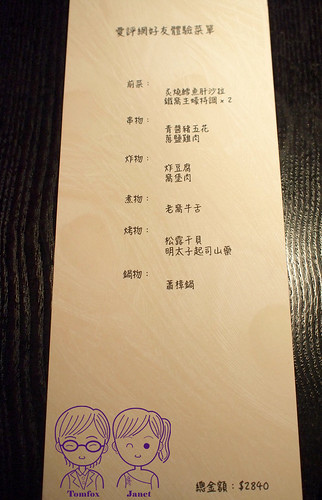 愛評網好友體驗菜單
前菜：
炙燒鱈魚肝沙拉
鐵窩王蠔特調 x 2
串物：
青醬豬五花
蔥鹽雞肉
炸物：
炸豆腐
窩堡肉
煮物：
老窩牛舌
烤物：
松露干貝
明太子起司山藥
鍋物：
蕭樟鍋
Tomfox
Janet
總金額：$2840